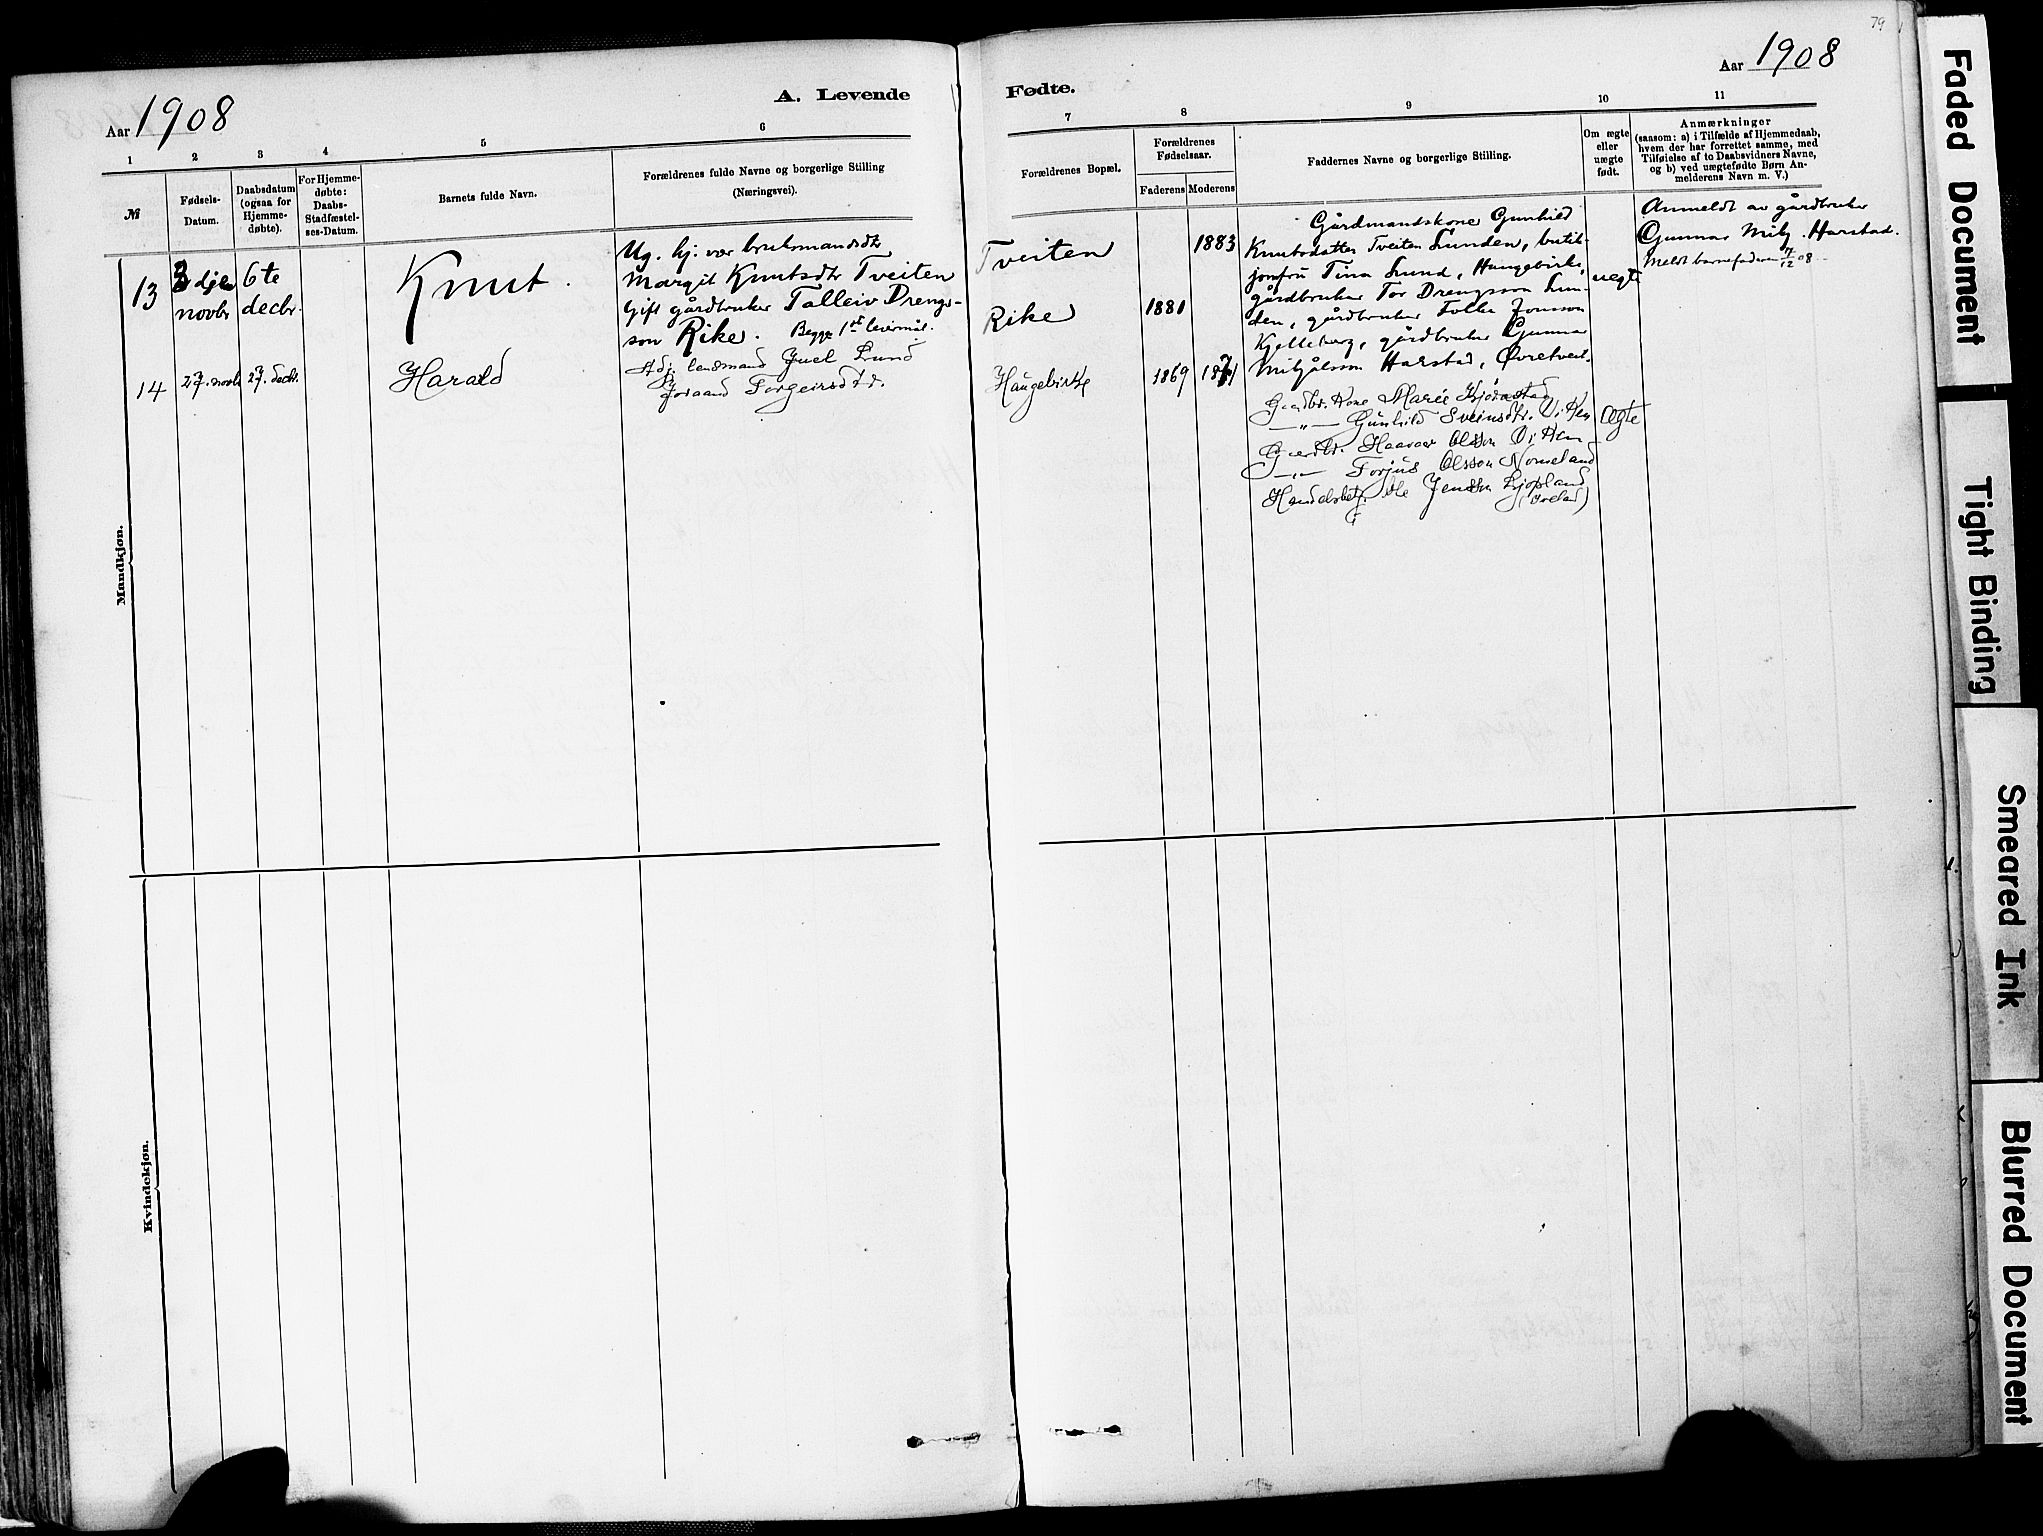 79
Aar 1908
A. Levende
Fødte.
Aar 1908
1
2
3
4
5
6
7
8
9
10
11
№
Fødsels-
Datum.
Daabsdatum
(ogsaa for
Hjemme-
døbte).
For Hjemme-
døbte:
Daabs-
Stadfæstel-
ses-Datum.
Barnets fulde Navn.
Forældrenes fulde Navne og borgerlige Stilling
(Næringsvei).
Forældrenes Bopæl.
Forældrenes
Fødselsaar.
Faderens
Moderens
Faddernes Navne og borgerlige Stilling.
Om ægte
eller
uægte
født.
Anmærkninger
(saasom: a) i Tilfælde af Hjemmedaab,
hvem der har forrettet samme, med
Tilføielse af to Daabsvidners Navne,
og b) ved uægtefødte Børn An-
melderens Navn m. V.)
Mandkjøn.
13
3dje
novbr
6te
decbr.
Knut.
Ug. hj. vær bruksmandsdtr
Margit Knutsdtr Tveiten
Gift gårdbruker Talleiv Drengs-
son Rike. Begge 1ste leiermål.
Tveiten
Rike
1881
1883
Gårdmandskone Gunhild
Knutsdatter Tveiten Lunden, butik-
jomfru Tina Lund, Haugebirke,
gårdbruker Tor Drengsson Lun-
den, gårdbruker Folke Jonsson
Kjelleberg, gårdbruker Gunnar
Mikjålsson Harstad, Øvretveit.
uegte
Anmeldt av gårdbruker
Gunnar Mikj. Harstad.
Meldt barnefaderen 7/12 08
14
27. novb
27. decbr.
Harald
Adj. lensmand Juel Lund
Joraand Torgeirsdtr.
Haugebirke
1869
1871
Gaardbr. Kone Marie Kjørestad
—„— Gunhild Sveinsdtr. Viken
Gaardbr. Haavar Olsson Viken
—„— Torjus Olsson Nomeland
Handelsbetj. Ole Jensson Ljosland
Ægte
Kvindekjøn.
Faded Document
Tight Binding
Smeared Ink
Blurred Document